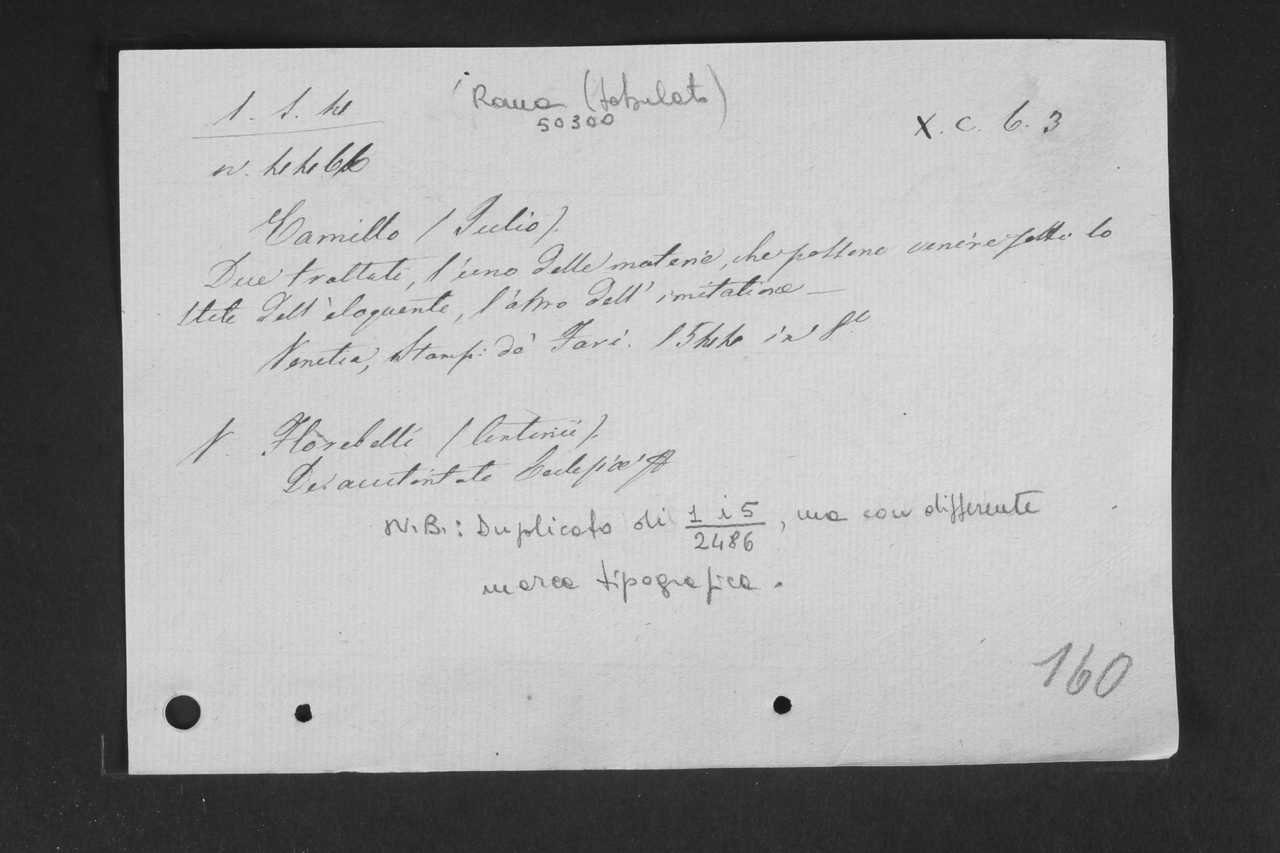 Rara (tabulato)
50300
1. S. 14
X. C. 6. 3
n. 4466
Camillo (Julio).
Due trattati, l'uno delle materie, che possono venire sotto lo
stile dell'eloquente, l'altro dell'imitatione —
Venetia, Stamp: da Fari. 1544 in 8°
V. Florebelli (Antonii).
De auctoritate Ecclesiæ
N.B.: Duplicato di 1 i 5 / 2486, ma con differente
marca tipografica.
160